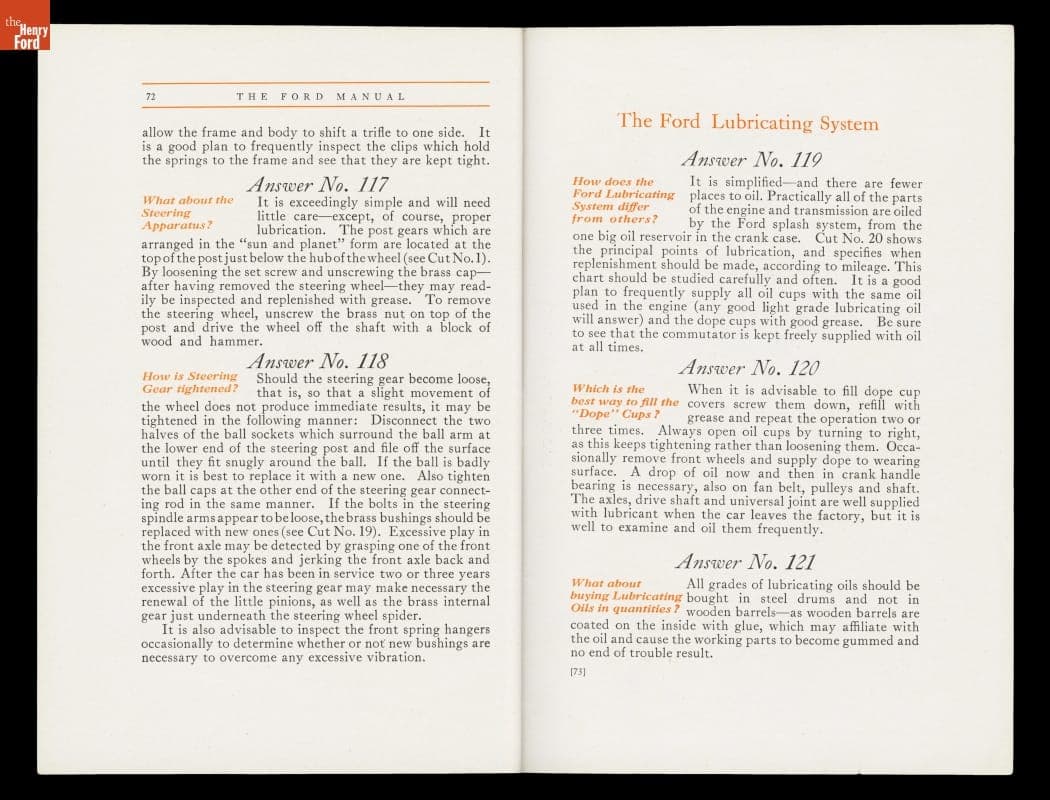 the
Henry
Ford
72 THE FORD MANUAL
allow the frame and body to shift a trifle to one side. It
is a good plan to frequently inspect the clips which hold
the springs to the frame and see that they are kept tight.
Answer No. 117
What about the
Steering
Apparatus?
It is exceedingly simple and will need
little care—except, of course, proper
lubrication. The post gears which are
arranged in the “sun and planet” form are located at the
top of the post just below the hub of the wheel (see Cut No. 1).
By loosening the set screw and unscrewing the brass cap—
after having removed the steering wheel—they may read-
ily be inspected and replenished with grease. To remove
the steering wheel, unscrew the brass nut on top of the
post and drive the wheel off the shaft with a block of
wood and hammer.
Answer No. 118
How is Steering
Gear tightened?
Should the steering gear become loose,
that is, so that a slight movement of
the wheel does not produce immediate results, it may be
tightened in the following manner: Disconnect the two
halves of the ball sockets which surround the ball arm at
the lower end of the steering post and file off the surface
until they fit snugly around the ball. If the ball is badly
worn it is best to replace it with a new one. Also tighten
the ball caps at the other end of the steering gear connect-
ing rod in the same manner. If the bolts in the steering
spindle arms appear to be loose, the brass bushings should be
replaced with new ones (see Cut No. 19). Excessive play in
the front axle may be detected by grasping one of the front
wheels by the spokes and jerking the front axle back and
forth. After the car has been in service two or three years
excessive play in the steering gear may make necessary the
renewal of the little pinions, as well as the brass internal
gear just underneath the steering wheel spider.
It is also advisable to inspect the front spring hangers
occasionally to determine whether or not new bushings are
necessary to overcome any excessive vibration.
The Ford Lubricating System
Answer No. 119
How does the
Ford Lubricating
System differ
from others?
It is simplified—and there are fewer
places to oil. Practically all of the parts
of the engine and transmission are oiled
by the Ford splash system, from the
one big oil reservoir in the crank case. Cut No. 20 shows
the principal points of lubrication, and specifies when
replenishment should be made, according to mileage. This
chart should be studied carefully and often. It is a good
plan to frequently supply all oil cups with the same oil
used in the engine (any good light grade lubricating oil
will answer) and the dope cups with good grease. Be sure
to see that the commutator is kept freely supplied with oil
at all times.
Answer No. 120
Which is the
best way to fill the
“Dope” Cups?
When it is advisable to fill dope cup
covers screw them down, refill with
grease and repeat the operation two or
three times. Always open oil cups by turning to right,
as this keeps tightening rather than loosening them. Occa-
sionally remove front wheels and supply dope to wearing
surface. A drop of oil now and then in crank handle
bearing is necessary, also on fan belt, pulleys and shaft.
The axles, drive shaft and universal joint are well supplied
with lubricant when the car leaves the factory, but it is
well to examine and oil them frequently.
Answer No. 121
What about
buying Lubricating
Oils in quantities?
All grades of lubricating oils should be
bought in steel drums and not in
wooden barrels—as wooden barrels are
coated on the inside with glue, which may affiliate with
the oil and cause the working parts to become gummed and
no end of trouble result.
[73]